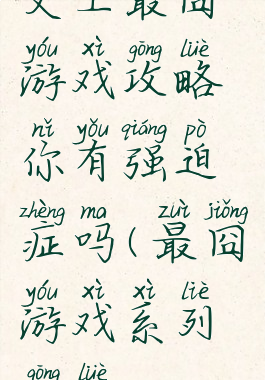 上最囧
yóu xì gōng lüè
游戏攻略
nǐ yǒu qiáng pò
你有强迫
zhèng ma zuì jiǒng
症吗(最囧
yóu xì xì liè
游戏系列
gōng lüè